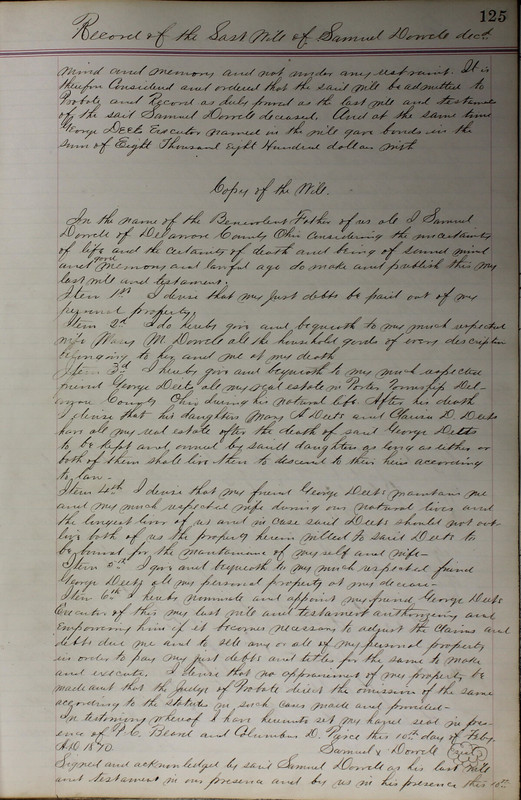 125
Record of the Last Will of Samuel Dowell decd.
mind and memory and not under any restraint. It is
therefore Considered and ordered that the said will be admitted to
Probate and Record as duly proved as the last will and testament
of the said Samuel Dowell deceased. And at the same time
George Deets Executor named in the will gave bonds in the
sum of Eight Thousand Eight Hundred dollars with
Copy of the Will.
In the name of the Benevolent Father of us all I Samuel
Dowell of Delaware County Ohio considering the uncertainty
of life and the certainty of death and being of sound mind
and good memory and lawful age do make and publish this my
last will and testament.
Item 1st I desire that my Just debts be paid out of my
personal property
Item 2d I do hereby give and bequeath to my much respected
wife Mary M. Dowell all the household goods of every description
belonging to her and me at my death
Item 3d I hereby give and bequeath to my much respected
friend George Deets all my real estate in Porter Township Del-
aware County Ohio during his natural life. After his death
I desire that his daughters Mary A Deets and Clarisa D. Deets
have all my real estate after the death of said George Deets
to be kept and owned by said daughters as long as either or
both of them shall live then to descend to their heirs according
to law-
Item 4th I desire that my friend George Deets maintain me
and my much respected wife during our natural lives and
the longest liver of us and in case said Deets should not out
live both of us the property herein willed to said Deets to
be bound for the maintainance of my self and wife-
Item 5th I give and bequeath to my much respected friend
George Deets all my personal property at my decease-
Item 6th I hereby nominate and appoint my friend George Deets
Executor of this my last will and testament authorizing and
empowering him if it becomes necessary to adjust the claims and
debts due me and to sell any or all of my personal property
in order to pay my just debts and titles for the same to make
and execute. I desire that no appraisement of my property be
made and that the Judge of Probate direct the omission of the same
according to the statutes in such cases made and provided-
In testimony whereof I have hereunto set my hand seal in pre-
sence of P. C. Beard and Columbus D. Pierce this 10th day of Feby.
A.D. 1870. Samuel Dowell seal
Signed and acknowledged by said Samuel Dowell as his last will
and testament in our presence and by us in his presence this 10th